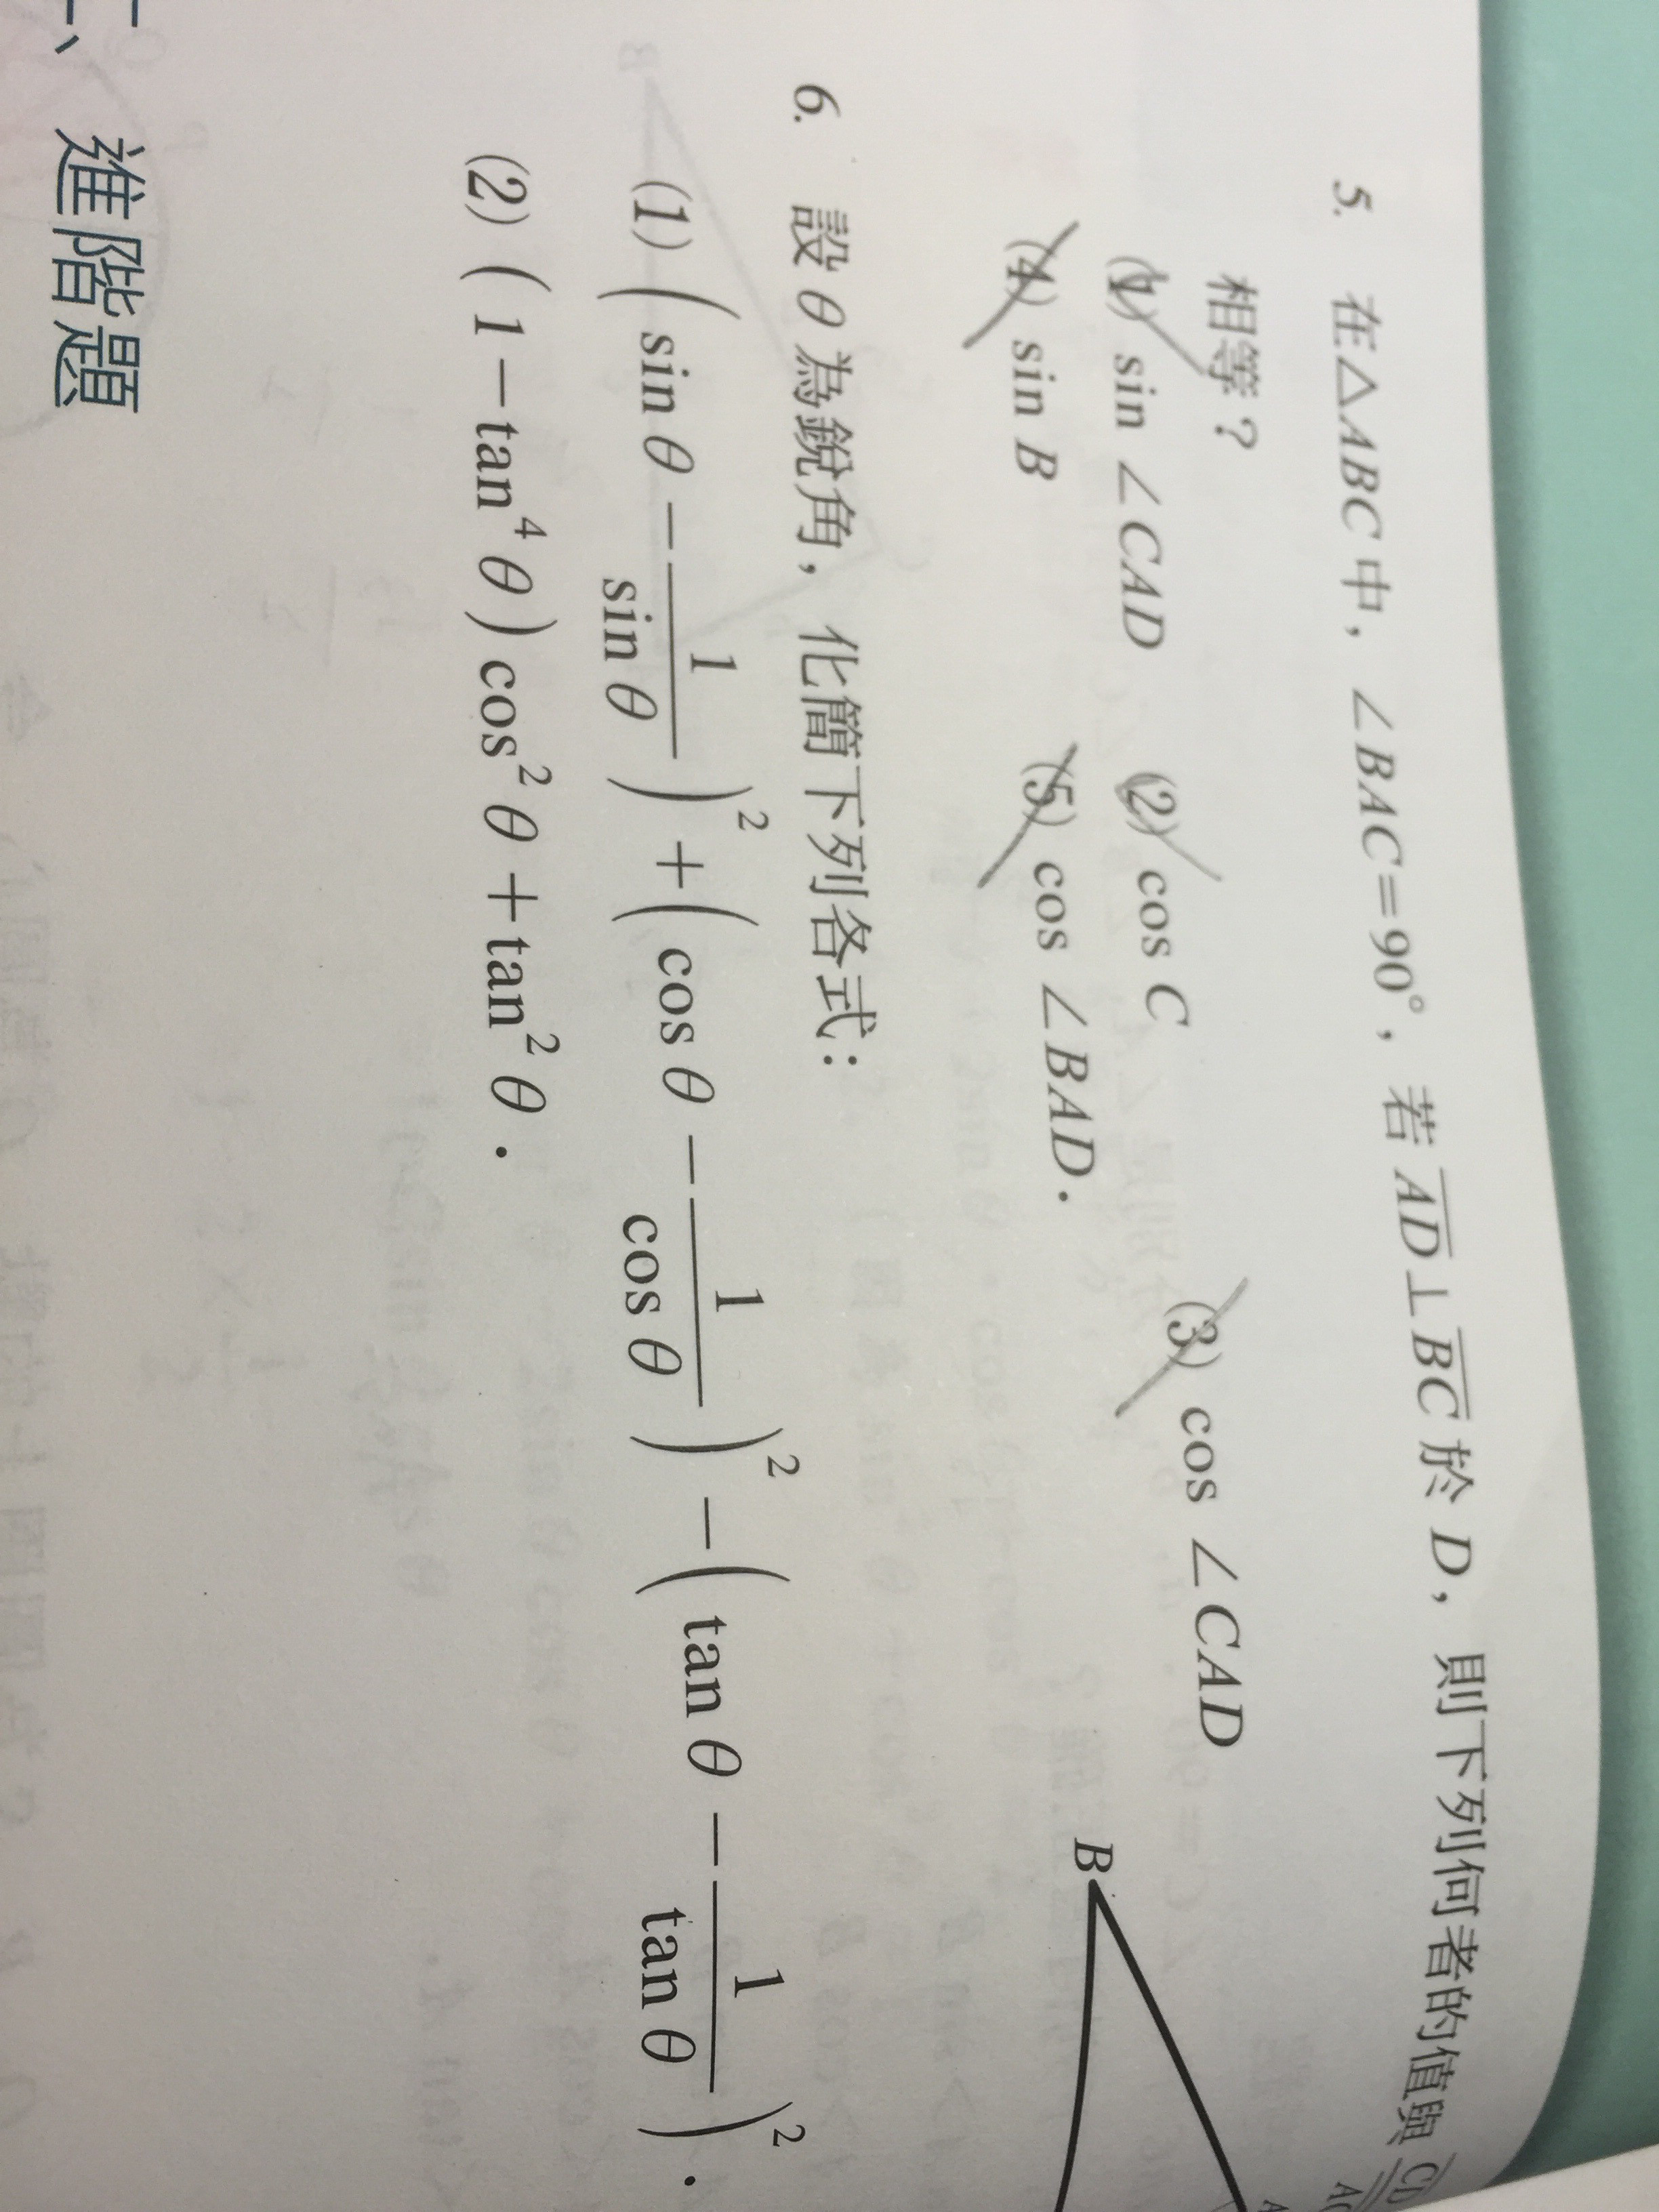 5. 在△ABC中，∠BAC=90°，若 \overline{AD}⊥\overline{BC} 於 D，則下列何者的值與 \frac{\overline{CD}}{\overline{AC}}
相等？
(1) sin ∠CAD (2) cos C (3) cos ∠CAD
(4) sin B (5) cos ∠BAD．
B
6. 設 θ 為銳角，化簡下列各式：
(1) ( sin θ − \frac{1}{sin θ} )² + ( cos θ − \frac{1}{cos θ} )² − ( tan θ − \frac{1}{tan θ} )²．
(2) ( 1 − tan⁴ θ ) cos² θ + tan² θ．
二、進階題